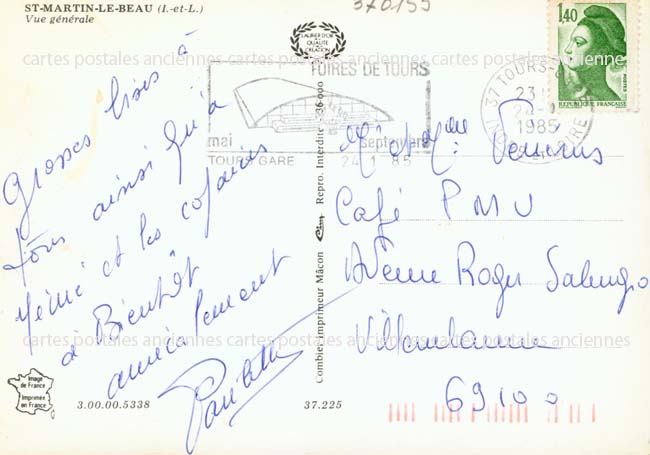 ST-MARTIN-LE-BEAU (I.-et-L.)
Vue générale
370155
LAURIER D'OR
DE LA
QUALITÉ
DE
CRÉATION
FOIRES DE TOURS
mai
septembre
TOURS GARE
24.1.85
37 TOURS-GARE
23 H
24-1
1985
INDRE ET LOIRE
1,40
RÉPUBLIQUE FRANÇAISE
POSTES
cartes postales anciennes cartes postales anciennes cartes postales anciennes
Grosses bises à
tous ainsi qu'à
Mémé et les copains
à Bientôt
amicalement
Paulette
Mr et Mme
Café PMU
Avenue Roger Salengro
Villeurbanne
69100
Combier Imprimeur Mâcon Cim Repro. Interdite 36 000
cartes postales anciennes cartes postales anciennes cartes postales anciennes
Image
de France
Imprimée
en France
3.00.00.5338
37.225